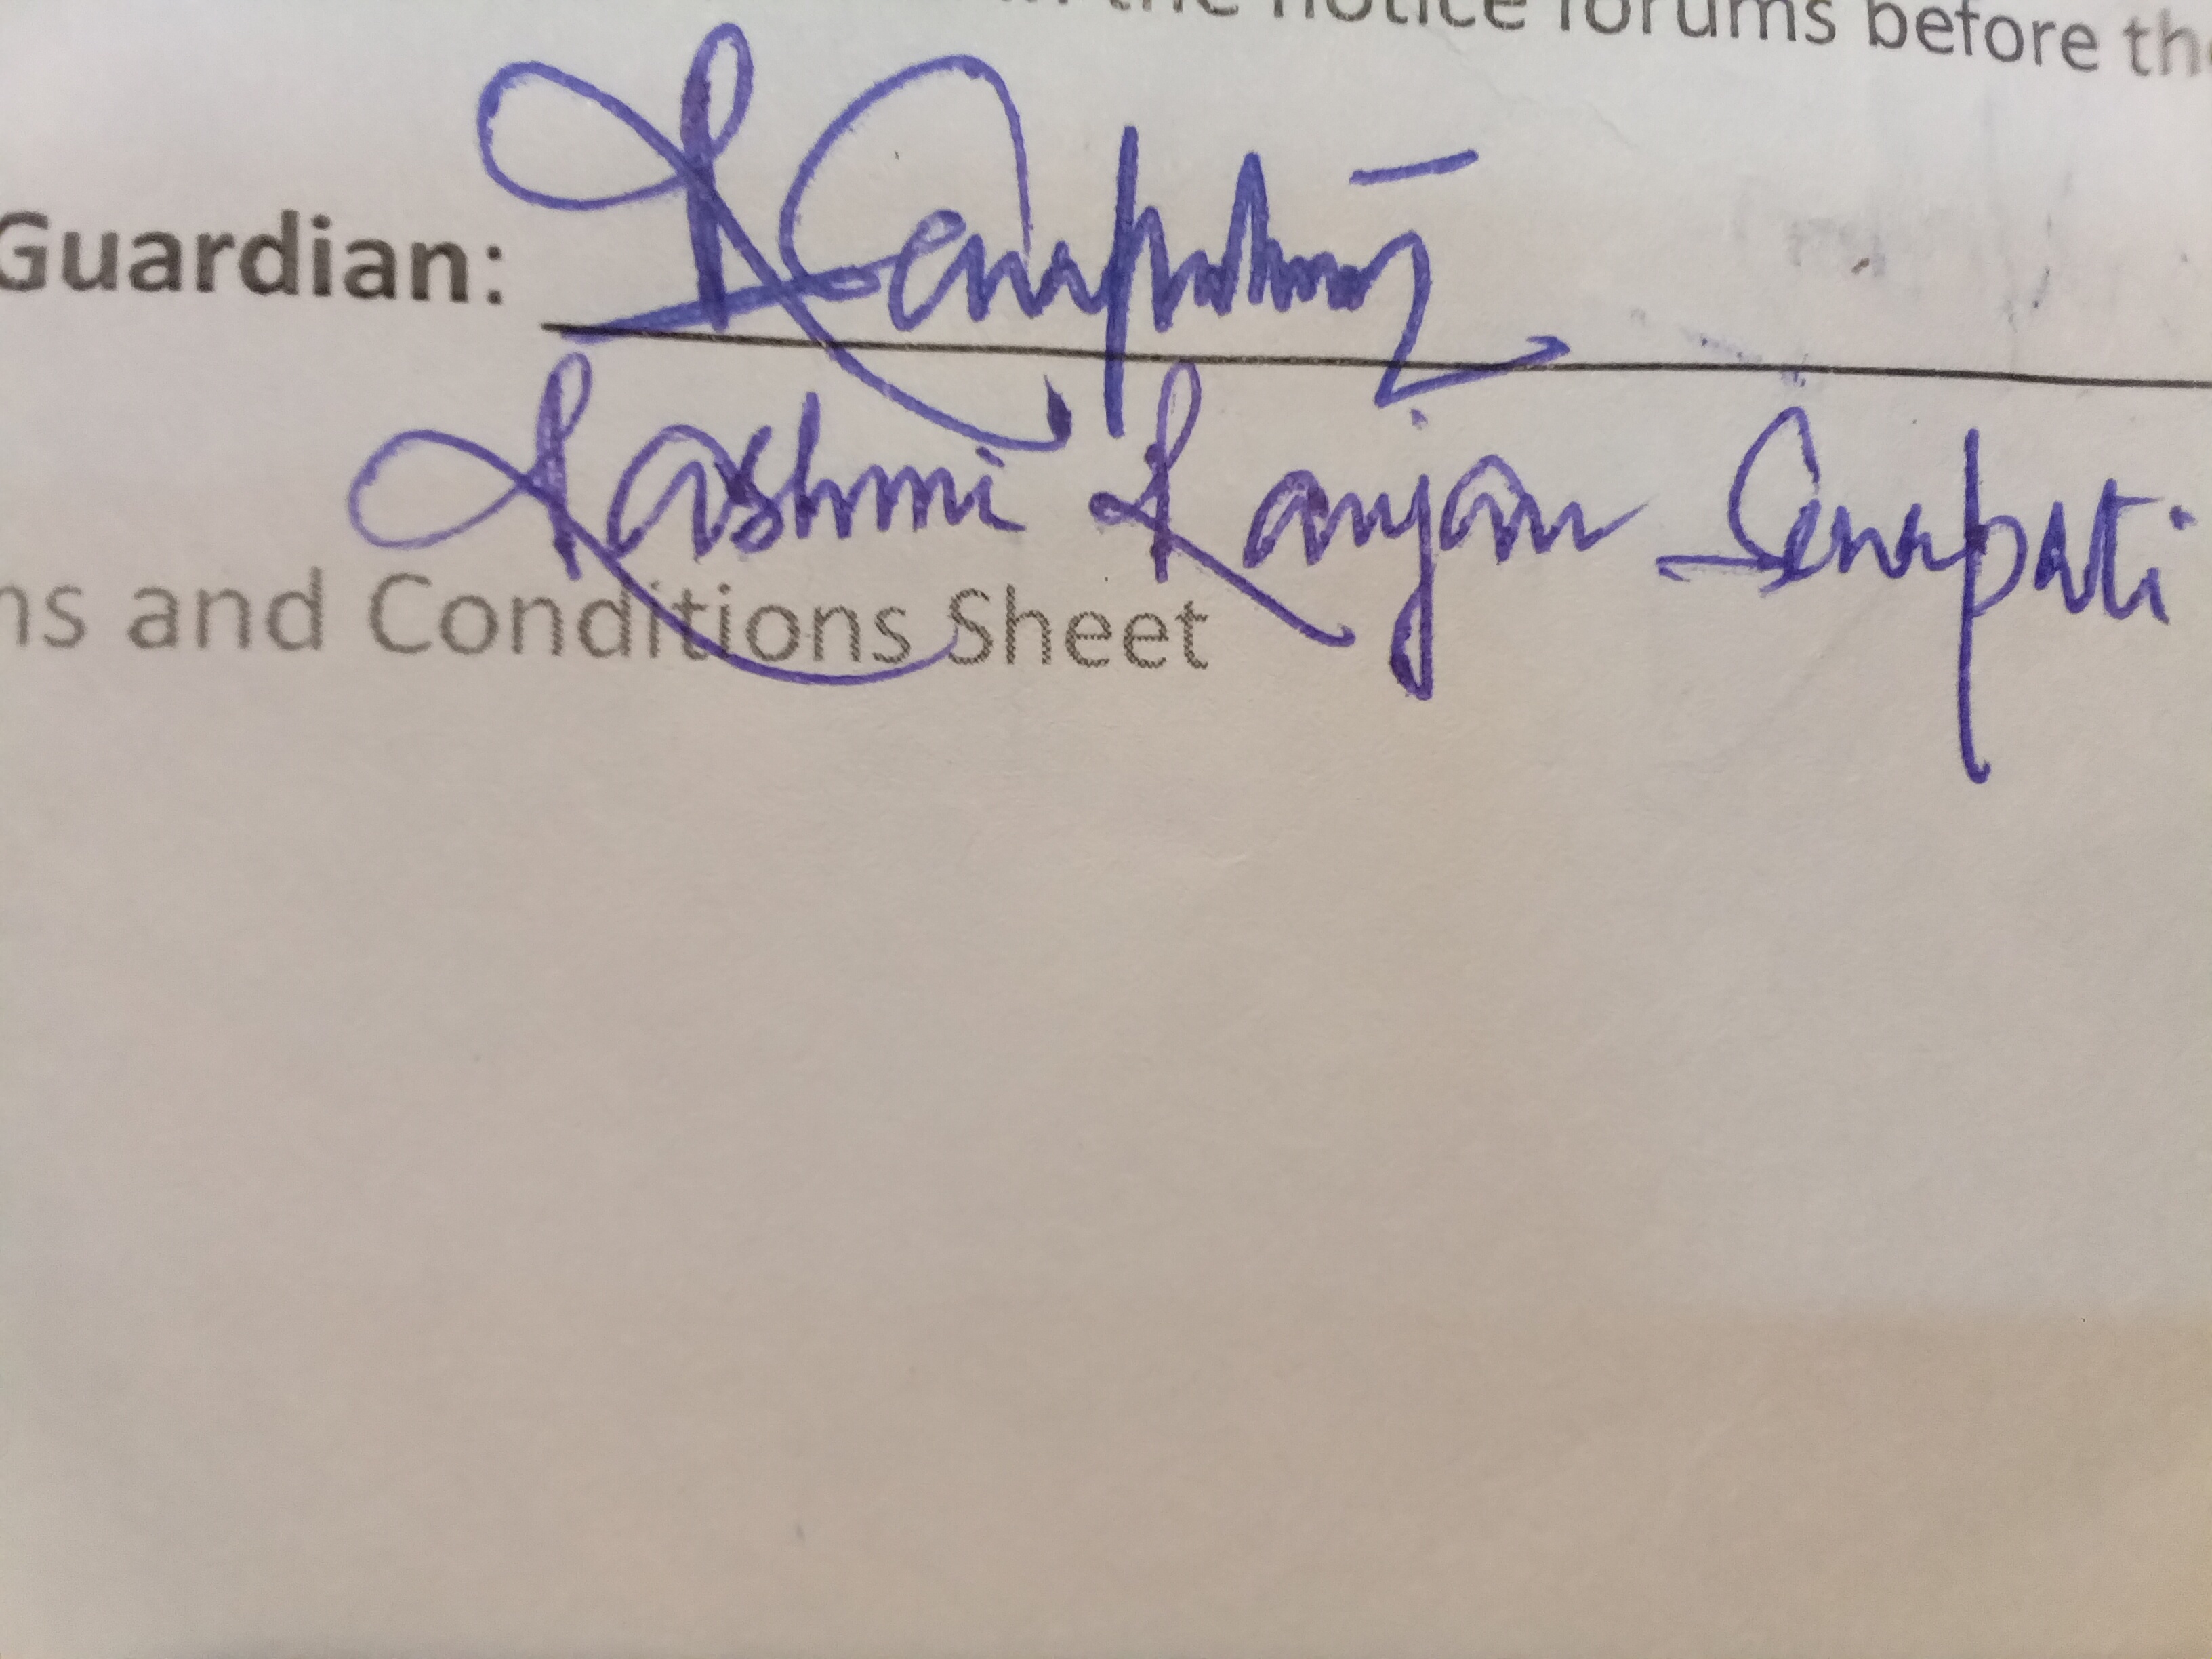 the notice forums before the
Guardian:
Rashmi Ranjan Senapati
and Conditions Sheet